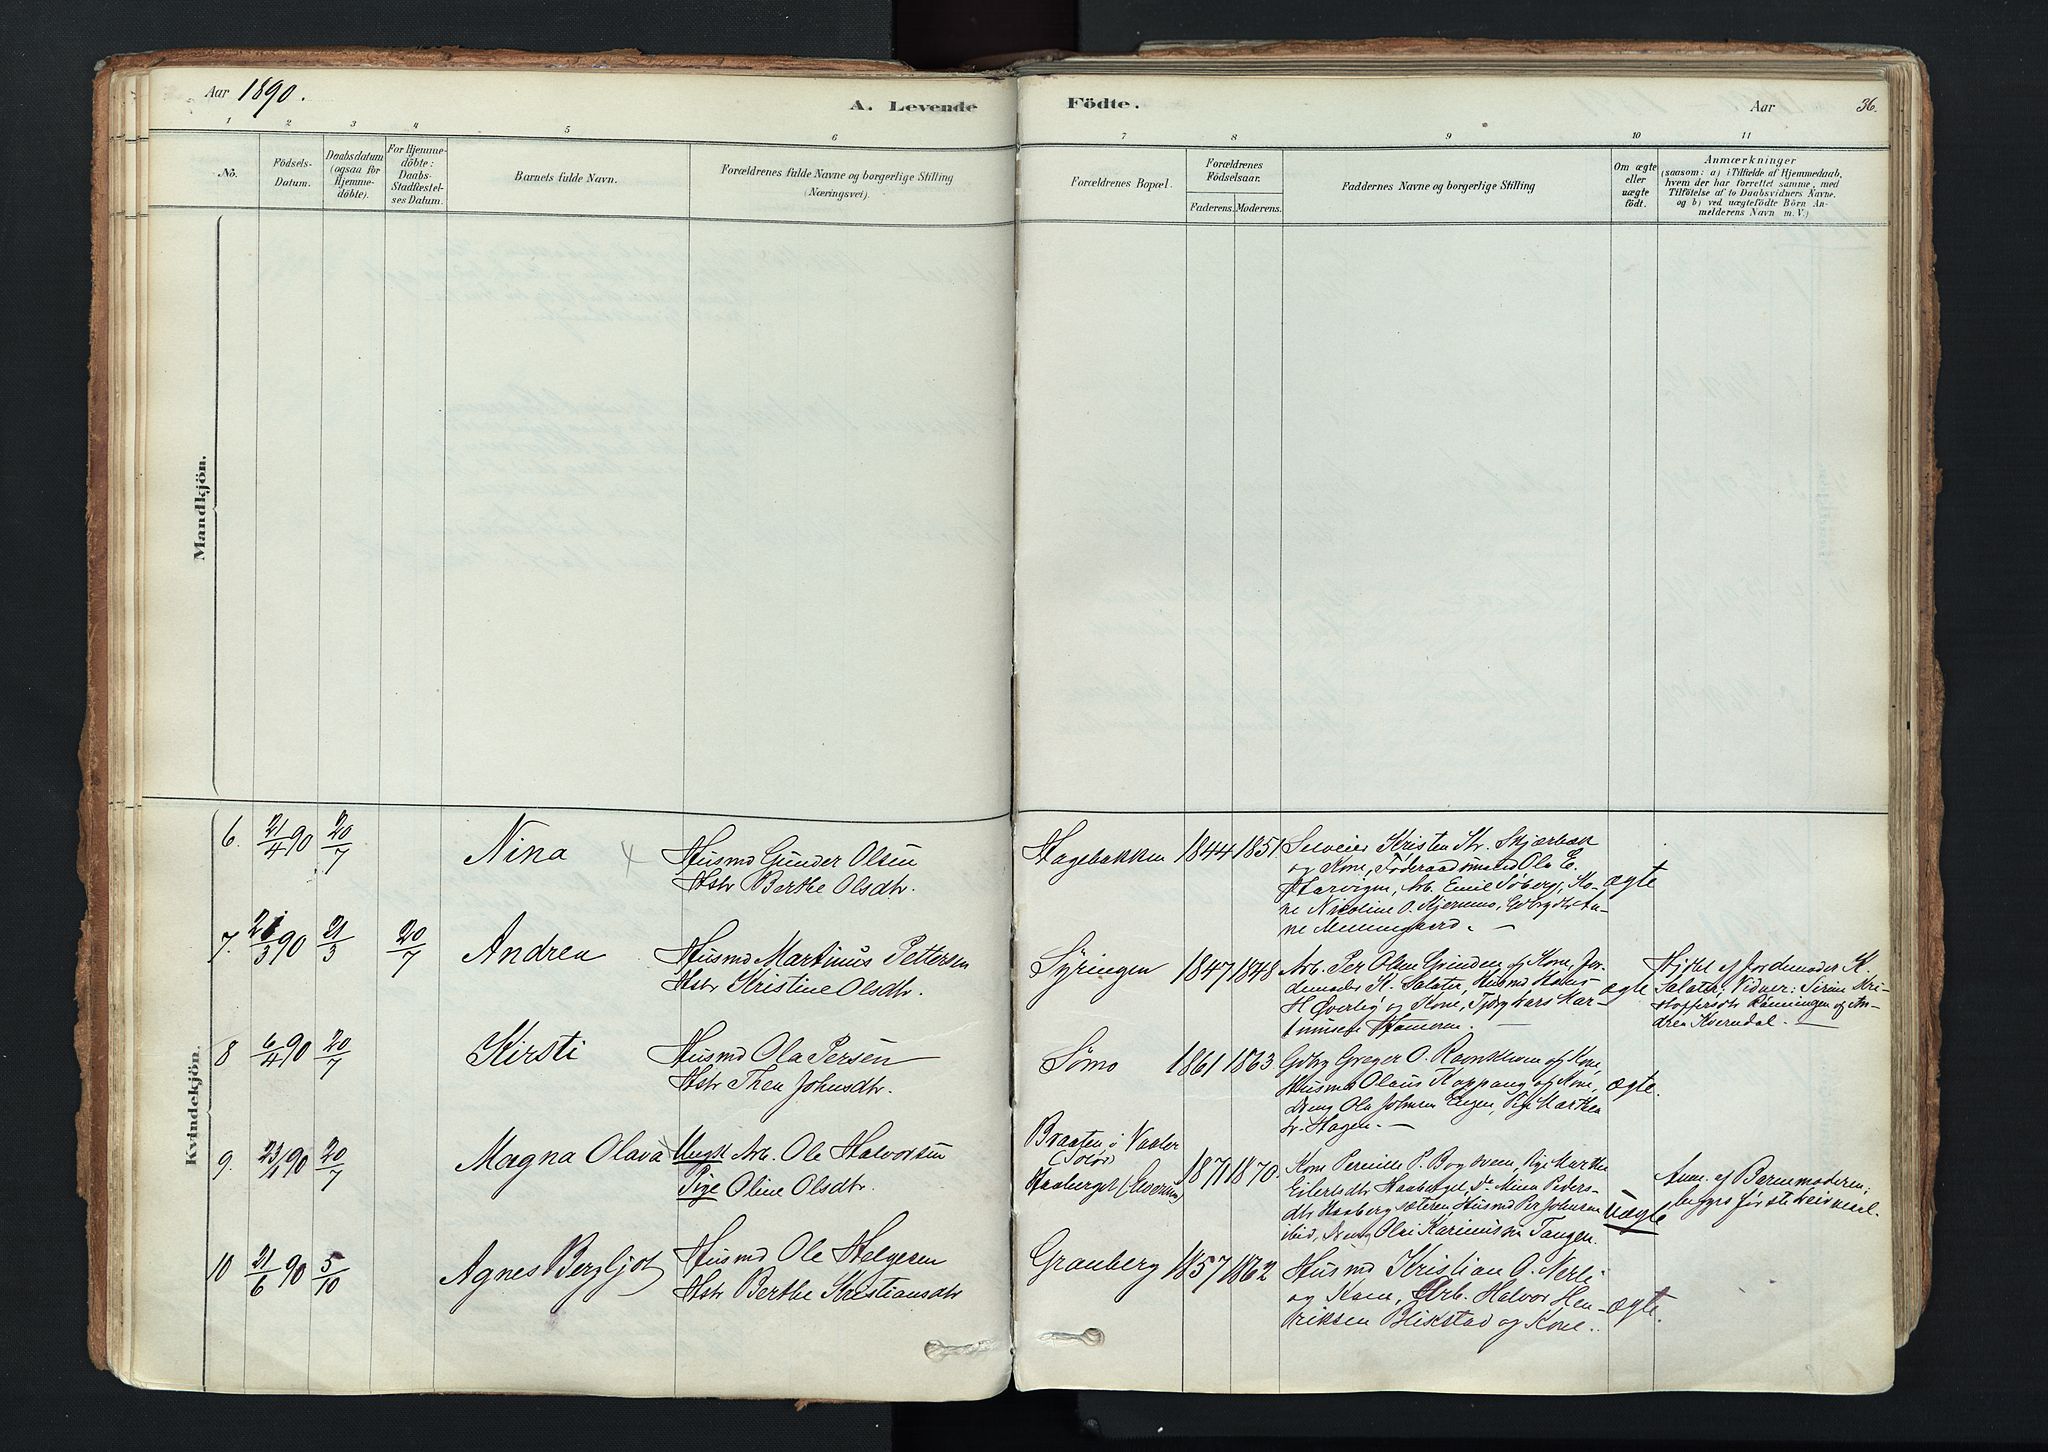 Aar 1890.
A. Levende Födte.
Aar
36.
1 2 3 4 5 6 7 8 9 10 11
No.
Födsels-
Datum.
Daabsdatum
(ogsaa for
Hjemme-
döbte).
For Hjemme-
döbte:
Daabs-
Stadfæstel-
ses Datum.
Barnets fulde Navn.
Forældrenes fulde Navne og borgerlige Stilling
(Næringsvei).
Forældrenes Bopæl.
Forældrenes
Födselsaar.
Faderens. Moderens.
Faddernes Navne og borgerlige Stilling
Om ægte
eller
uægte
födt.
Anmærkninger
(saasom: a) i Tilfælde af Hjemmedaab,
hvem der har forrettet samme, med
Tilföielse af to Daabsvidners Navne,
og b) ved uægtefödte Börn An-
melderens Navn m. V.)
Mandkjön.
Kvindekjön.
6. 21/4 90 20/7
Nina
Husmd Gunder Olsen
Hstr Berthe Olsdtr.
Hagebakken 1844 1851.
Selveier Kristen Kr. Skjærbæk
og Kone, Föderaadsmand Ola E.
Harvigen, Arb. Emil Söberg, Ko-
ne Nicoline O. Kjernmo, Gdbrgdtr An-
ne
ægte
7. 21/3 90 21/3 20/7
Andrea
Husmd Martinus Pettersen
Hstr Kristine Olsdtr.
Syringen 1847 1848
Arb. Per Olsen Grinden og Kone, Jor-
demoder K. Salater, Husmd Hans
H Øverlig og Kone, Tjbrg Lars Mar-
tinusen
ægte
Hjdbt af Jordemoder K.
Salater; Vidner: Sirine Kri-
stoffersdtr Rönningen og An-
drea Kverndal.
8 6/4 90 20/7
Kirsti
Husmd Ola Persen
Hstr Thea Johnsdtr.
Sömo 1861 1863
Gdbrg Greger O. og Kone,
Husmd Olaus Koppang og Kone,
Ung Ola Johnsen Engen, Pig Marthea
Hagen.
ægte.
9. 23/1 90 20/7
Magna Olava
Ungk Arb. Ole Halvorsen
Pige Oline Olsdtr.
Braaten i Vaaler
(Solör)
Haaberget (Elverum)
1871 1870.
Kone Pernille P. Bogsveen, Pige Marthe
Eilertsdtr Haaberget, Do Mina Peders-
dtr Haabergsæteren, Husmd Per Johnsen
ibid, Ung Olai Karinius Tangen.
Uægte
Anm. af Barnemoderen;
begges förste Leiermaal.
10 21/6 90 5/10
Agnes Bergljot
Husmd Ole Helgesen
Hstr Berthe Kristiansdtr
Granberg 1857 1862
Husmd Kristian O. Nerli
og Kone, Arb. Halvor Hen-
riksen Blikstad og Kone.
ægte.